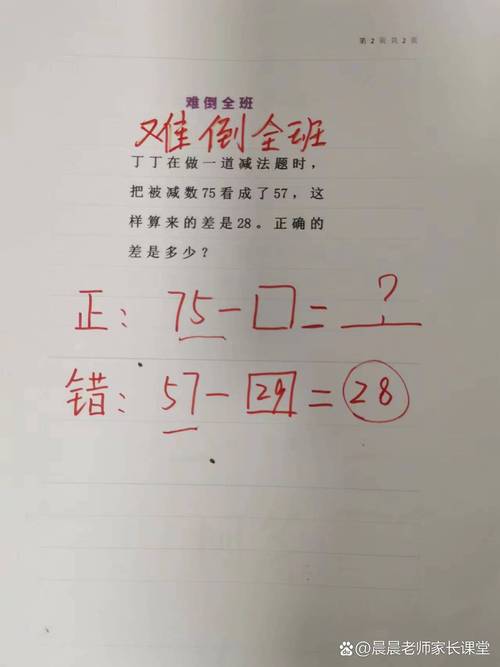 第 2 页 共 2 页
难倒全班
难倒全班
丁丁在做一道减法题时，
把被减数75看成了57，这
样算来的差是28。正确的
差是多少？
正：75-□=?
错：57-29=28
晨晨老师家长课堂